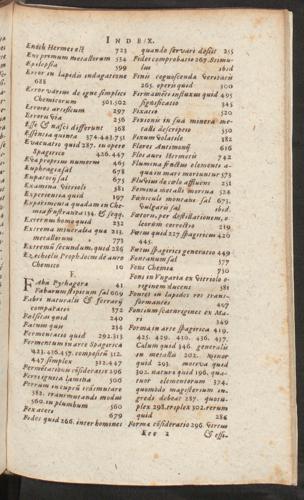 INDEX.
Enoch Hermes est 723
Ens primum metallorum 554
Epilepsia 599
Error in lapidis indagatione
688
Error varius de igne simplici
Chemicorum 501.502
Errores artificum 297
Erroris via 256
Esse & nasci differunt 368
Essentia quinta 374.443.751
Evacuatio quid 287. in opere
Spagirico 426.447
Eva propria numeri 465
Euphragia sal 678
Euporista sal 675
Examina Vitrioli 581
Experientia quid 197
Experimenta quædam in Che-
mia & seqq.
Externus homo quid 232
Extrema mineralia qua 213.
metallorum 773
Extremi secundum, quid 286
Ezechielis Proph. locus de auro
Chemico 10
F.
Faba Pythagoræ 41
Fabarum stipitum sal 669
Fabri naturalis & ferrarij
comparatio 372
Falsitas quid 240
Fatum quæ 234
Fermentatio quid 292.313
Fermentum in arte Spagirica
423.436.457. compositū 312.
447. simplex 312.447
Fermentationis cōsideratio 296
Ferri ignesca lamina 508
Ferrum in cuprū transmutare
582. transmutandi modus
560. in plumbum 560
Fex aceris 679
Fides quid 266. inter homines
quando servari debeat 255
Fides comprobatio 267. & simu-
lus ibid
Finis cognoscenda Veritatis
265. operis quid 300
Firmamētis influxus quid 495
significatio 345
Fixatio 520
Fixionis in sua minera me-
talli descriptio 550
Fixum Volatile 382
Flores Antimonij 616
Flos aures Hermetis 742
Flumina sunt elementa a-
quæ in mari moriuntur 573
Fluvius de cœlo affluens 251
Fomina metalli minera 528
Fœniculi montani sal 673.
Vulgaris sal ibid.
Fœtorum, per destillationem, o-
leorum correctio 219
Fœtus quid 227. spagiricus 420
445.
Fœtus spagirici generatio 449
Fontanum sal 577
Fons Chemia 730
Fons in Vngaria ex Vitriolo o-
riginem ducens 581
Fontes in lapides res trans-
formantes 407
Fontium scaturigines ex Ma-
ri 349
Forma in arte spagirica 419.
425. 429. 430. 436. 437.
Calum quid 346. generalis
in metallis 202. minor
quid 293. morva quid
302. natura quid 196. qua-
tuor elementorum 374.
quomodo magisterium in-
gredi debeat 287. quotu-
plex 298. triplex 302. rerum
quid 206
Forma cōsideratio 296. Virtus
Kee 2 & essi-